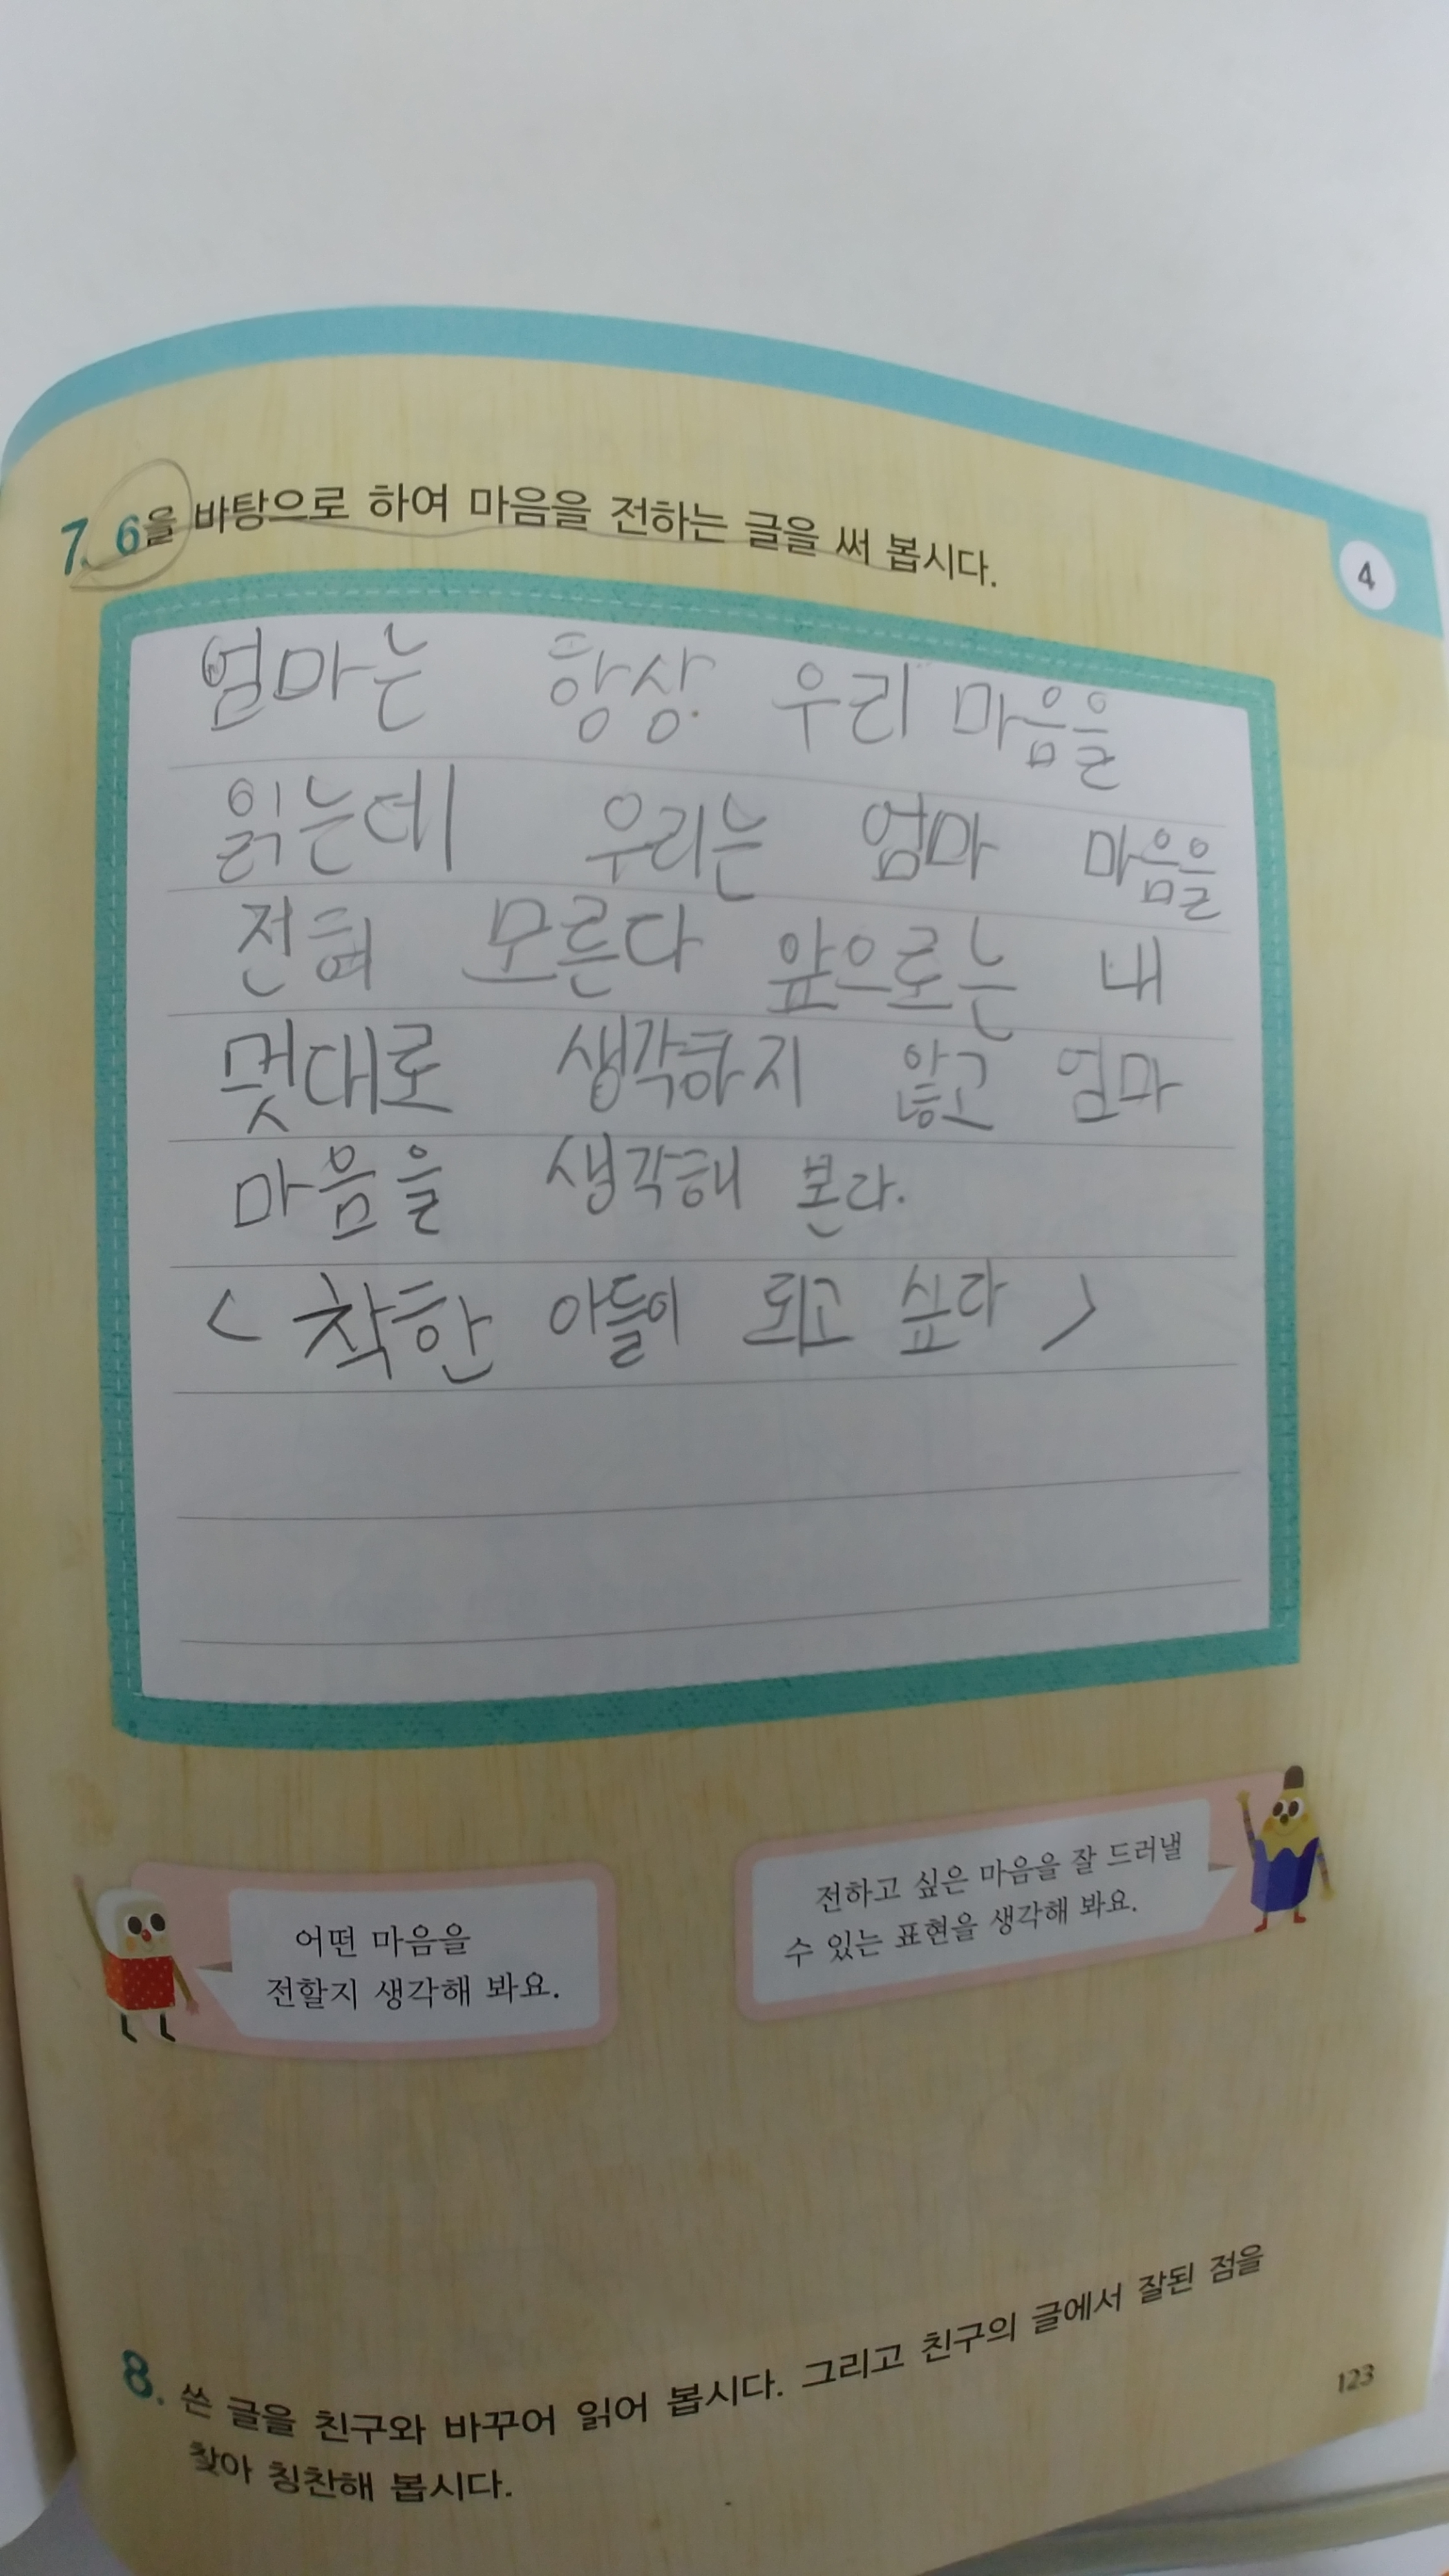 7. 6을 바탕으로 하여 마음을 전하는 글을 써 봅시다.
4
엄마는 항상 우리 마음을
읽는데 우리는 엄마 마음을
전혀 모른다 앞으로는 내
멋대로 생각하지 않고 엄마
마음을 생각해 본다.
< 착한 아들이 되고 싶다 >
어떤 마음을
전할지 생각해 봐요.
전하고 싶은 마음을 잘 드러낼
수 있는 표현을 생각해 봐요.
8. 쓴 글을 친구와 바꾸어 읽어 봅시다. 그리고 친구의 글에서 잘된 점을
찾아 칭찬해 봅시다.
123